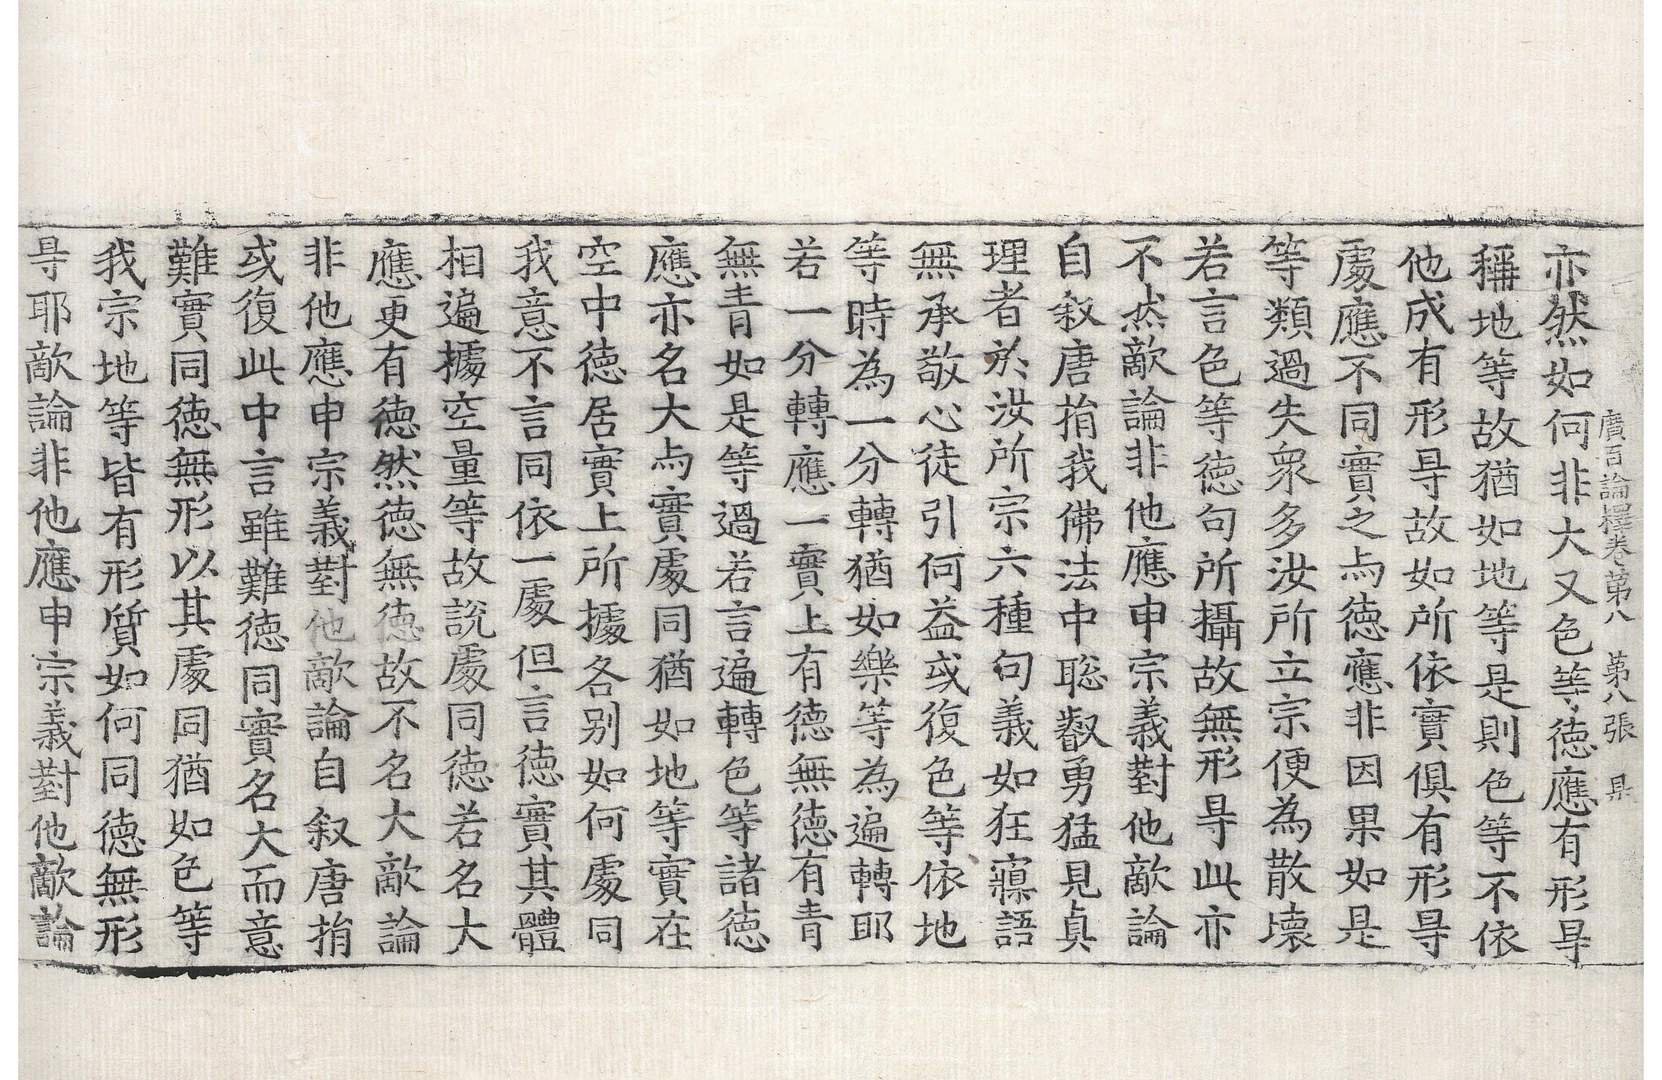 廣百論釋卷第八 第八張 是
亦然如何非大又色等徳應有形㝵
稱地等故猶如地等是則色等不依
他成有形㝵故如所依實俱有形㝵
處應不同實之与徳應非因果如是
等類過失衆多汝所立宗便為散壞
若言色等徳句所攝故無形㝵此亦
不然敵論非他應申宗義對他敵論
自叙唐捐我佛法中聡叡勇猛見貞
理者於汝所宗六種句義如狂寱語
無承敬心徒引何益或復色等依地
等時為一分轉猶如樂等為遍轉耶
若一分轉應一實上有徳無徳有青
無青如是等過若言遍轉色等諸徳
應亦名大与實處同猶如地等實在
空中徳居實上所據各別如何處同
我意不言同依一處但言徳實其體
相遍據空量等故說處同徳若名大
應更有徳然徳無徳故不名大敵論
非他應申宗義對他敵論自叙唐捐
或復此中言雖難徳同實名大而意
難實同徳無形以其處同猶如色等
我宗地等皆有形質如何同徳無形
㝵耶敵論非他應申宗義對他敵論